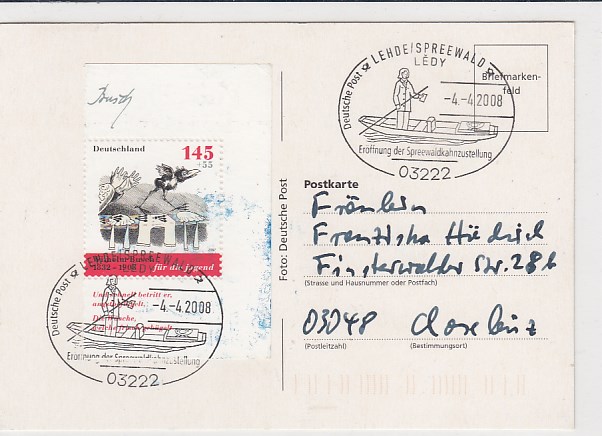 Busch
Deutschland
145
+55
Wilhelm Busch
1832 – 1908 für die Jugend
Und schnell betritt er,
angstbeflügelt,
Die Wäsche,
welche frisch gebügelt.
Deutsche Post LEHDE/SPREEWALD
LĚDY
-4.-4.2008
Eröffnung der Spreewaldkahnzustellung
03222
Deutsche Post LEHDE/SPREEWALD
LĚDY
-4.-4.2008
Eröffnung der Spreewaldkahnzustellung
03222
Briefmarken-
feld
Foto: Deutsche Post
Postkarte
Fräulein
Franziska
Finsterwalder Str. 28b
(Strasse und Hausnummer oder Postfach)
03048
(Postleitzahl)
(Bestimmungsort)